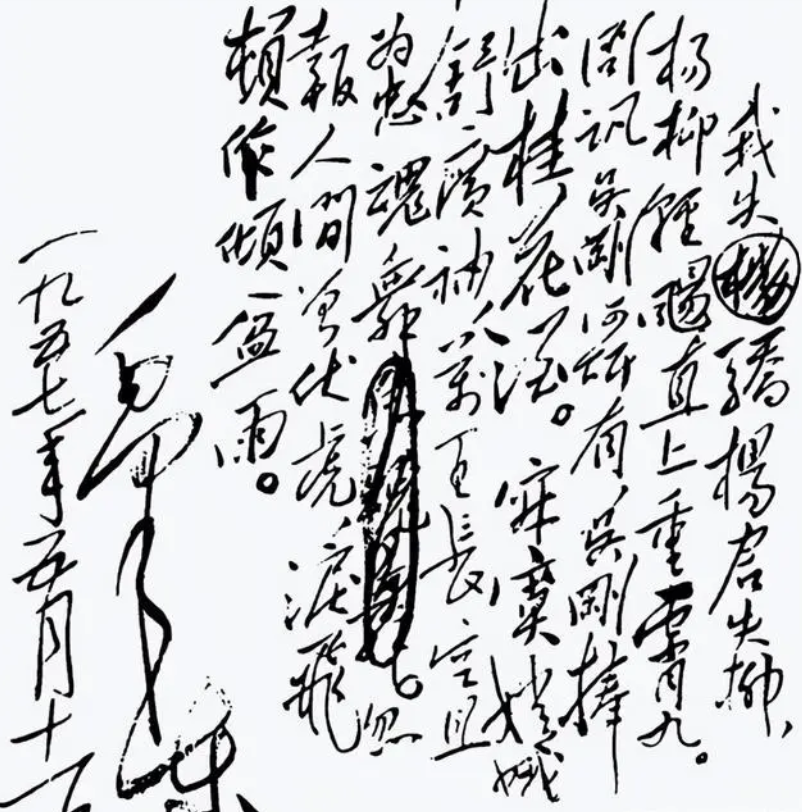 我失驕楊君失柳、
杨柳輕颺直上重霄九。
问訊吴剛何所有、吴剛捧
出桂花酒。寂寞嫦娥
舒廣袖、萬里長空且
为忠魂舞。忽
報人間曾伏虎、淚飛
頓作傾盆雨。
毛泽东
一九五七年五月十一